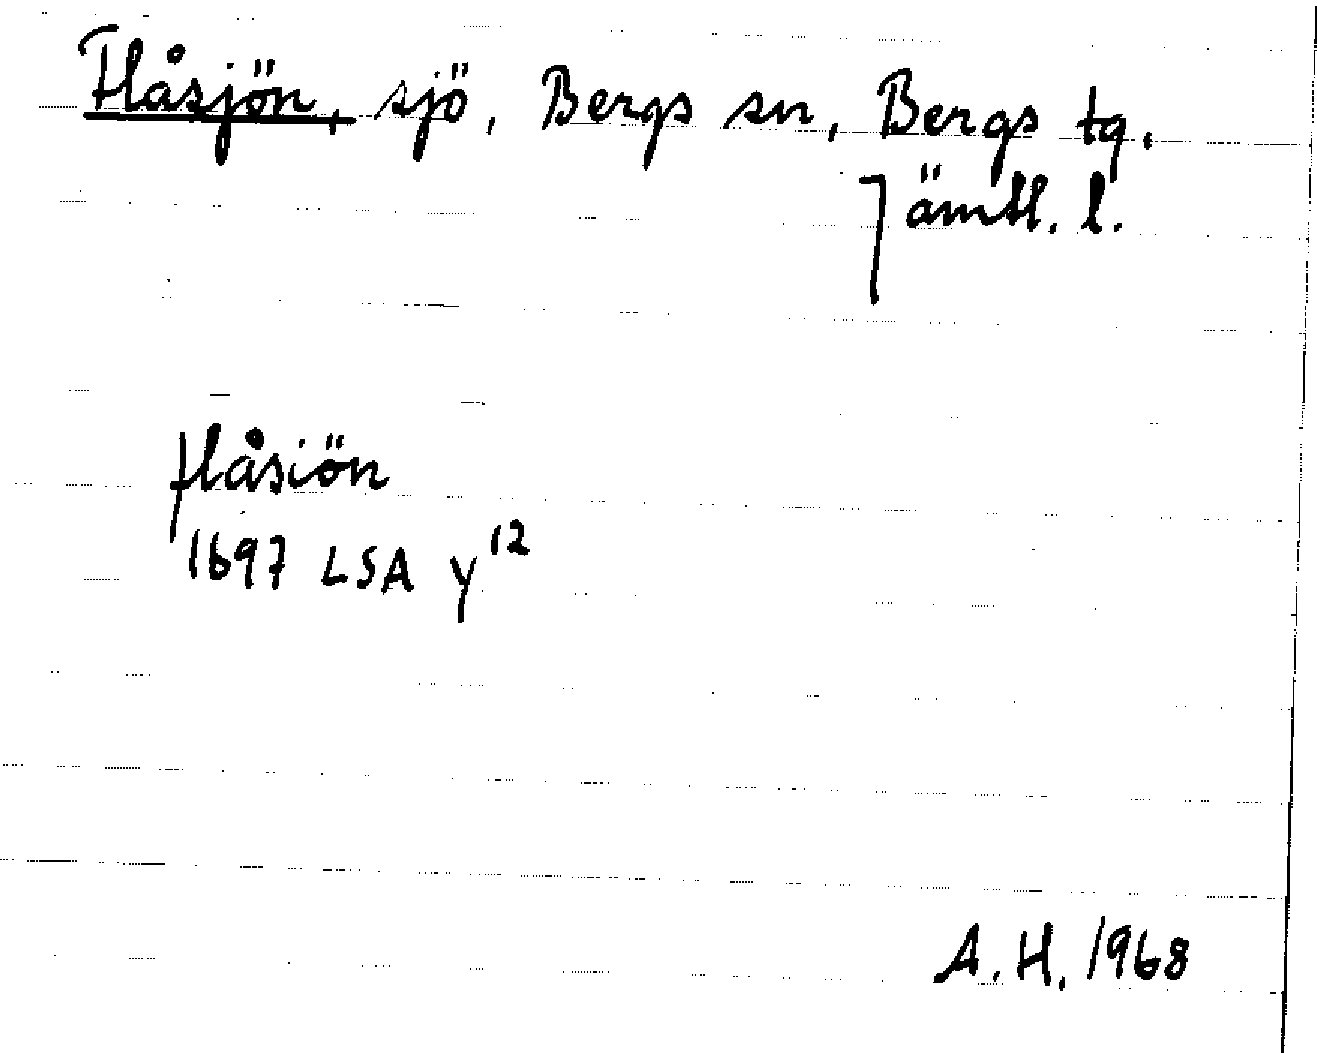 Flåsjön, sjö, Bergs sn, Bergs tg.
Jämtl. l.
flåsiön
1697 LSA y¹²
A. H. 1968